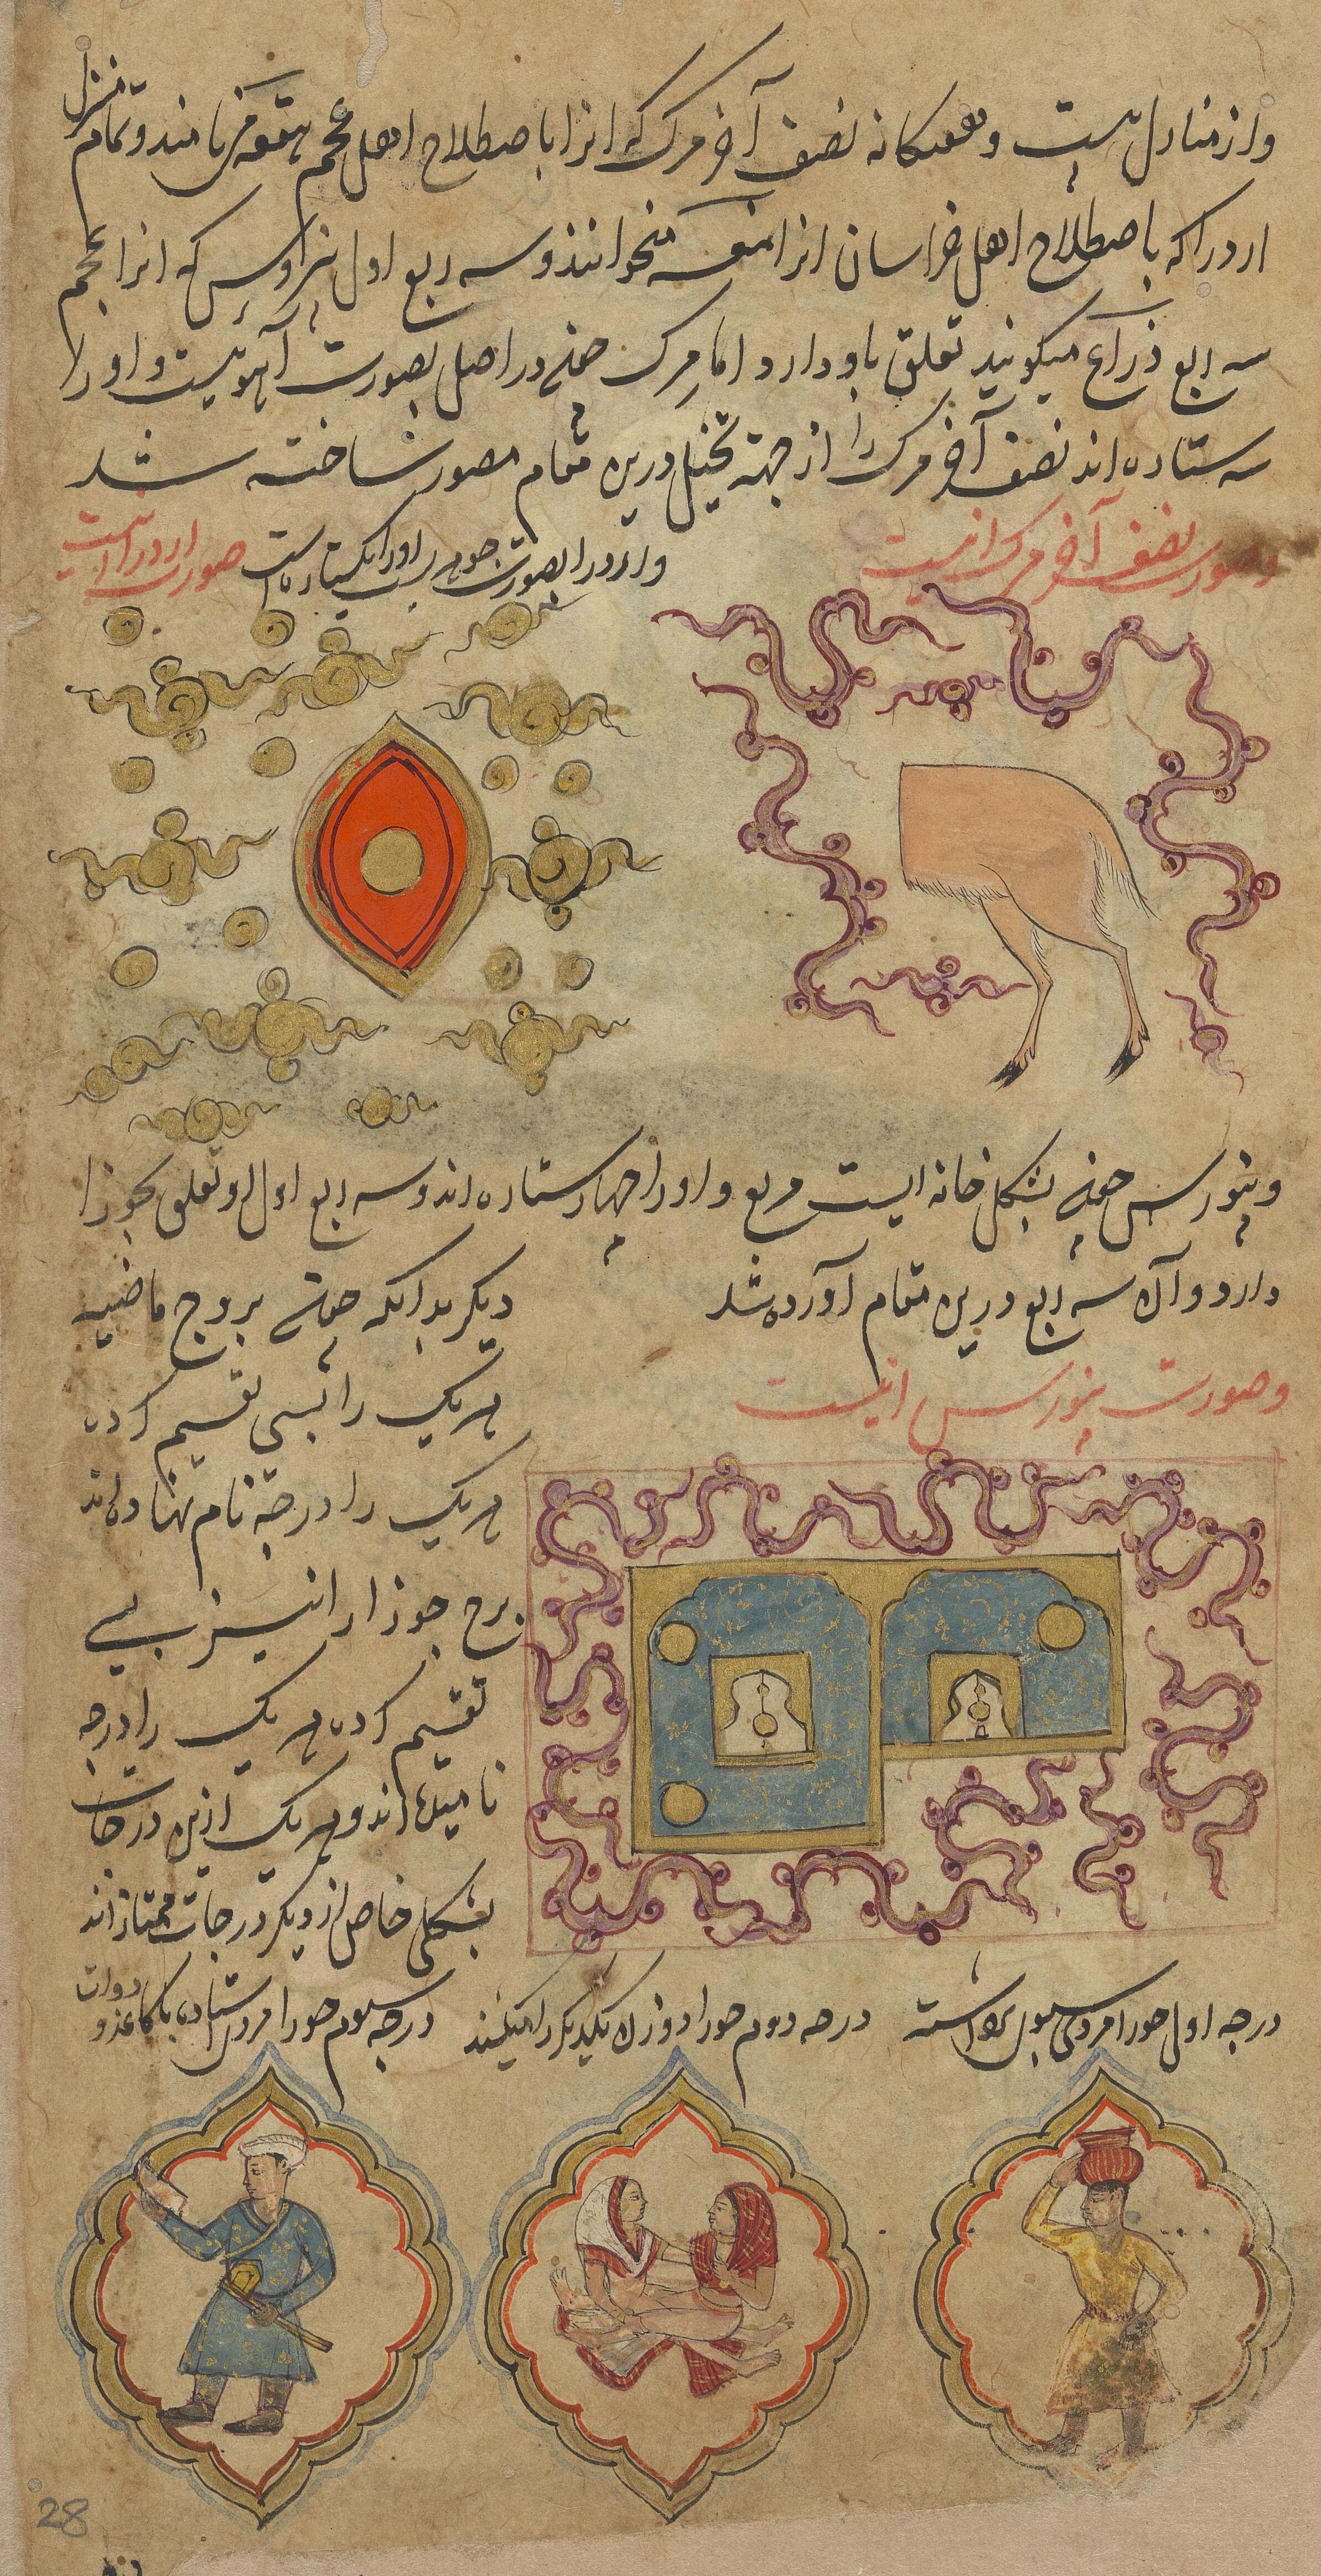 واز منازل بیست و هفتکانه نصف آخر مرک که انرا باصطلاح اهل عجم هقعه می نامند و تمام منزل
اردرا که باصطلاح اهل خراسان انرا هنعه میخوانند و سه ربع اول پنروس که انرا عجم
سه ربع ذراع میکویند تعلق باو دارد اما مرک جمله در اصل بصورت آهوئیست و او را
سه ستاره اند نصف آخر مرک را از جهة تخیل درین مقام مصور ساخته شد
وصورت نصف آخر مرک اینست
و اردرا بصورت جوهریست و او را یک ستاره است
صورت اردرا اینست
و پنورس جمله بشکل خانه ایست مربع و او را چهار ستاره اند و سه ربع اول او تعلق بجوزا
دارد و آن سه ربع درین مقام آورده شد
وصورت پنورس اینست
دیکر بدانکه جمله بروج ماضیه
هر یک را بسی تقسیم کرده
هر یک را درجه نام نهاده اند
برج جوزا را نیز بسی
تقسیم کرده هر یک را درجه
نامیده اند و هر یک ازین درجات
بشکلی خاص از دیکر درجات ممتاز اند
درجه اول جوزا مردی سبوی بر سر داشته
درجه دوم جوزا دو زن یکدیکر را میکشند
درجه سوم جوزا مردی استاده با کاغذ و دوات
28